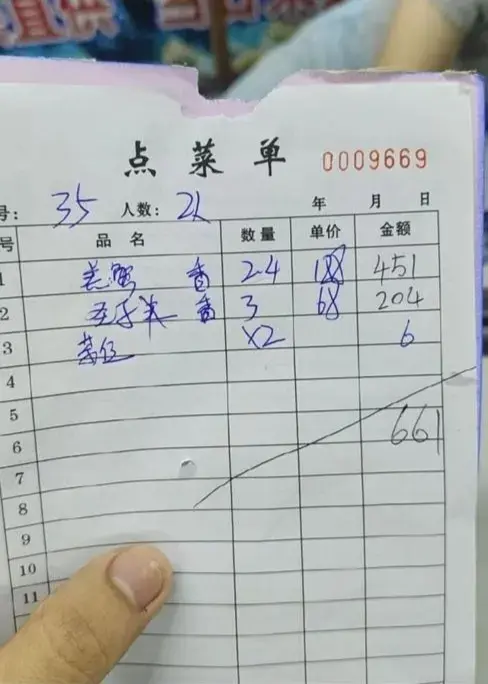 直供
点菜单 0009669
号: 35 人数: 2人 年 月 日
号 品名 数量 单价 金额
1 羔蟹 香 2.4 188 451
2 香 3 68 204
3 茶位 x2 6
4
5
661
6
7
8
9
10
11